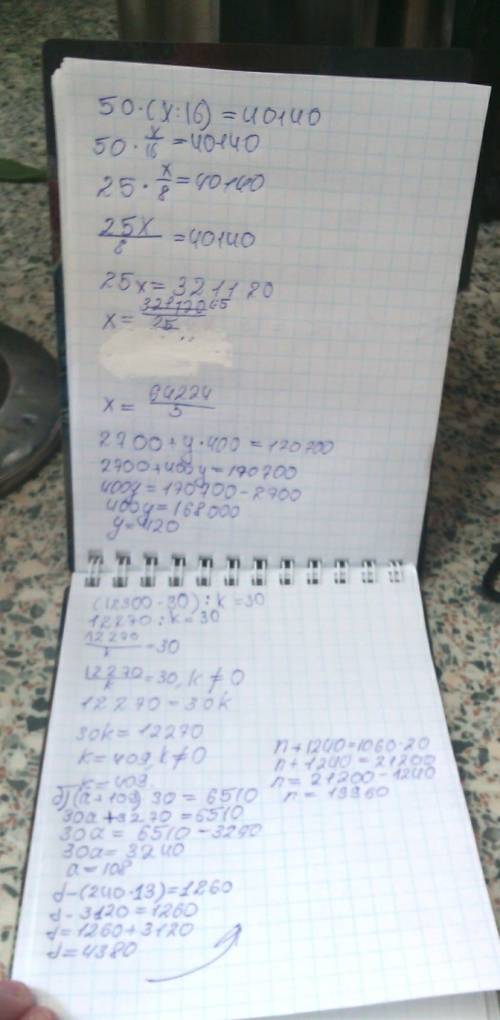 50·(x:16) = 40140
50· x/16 = 40140
25· x/8 = 40140
25x/8 = 40140
25x = 321120
x = 321120/25
x = 64224/5
2700 + y·400 = 170700
2700 + 400y = 170700
400y = 170700 - 2700
400y = 168000
y = 420
(12300 - 30) : k = 30
12270 : k = 30
12270/k = 30
12270/k = 30, k ≠ 0
12270 = 30k
30k = 12270
k = 409, k ≠ 0
k = 409
n + 1240 = 1060·20
n + 1240 = 21200
n = 21200 - 1240
n = 19960
б) (a + 109) 30 = 6510
30a + 3270 = 6510
30a = 6510 - 3270
30a = 3240
a = 108
d - (240·13) = 1260
d - 3120 = 1260
d = 1260 + 3120
d = 4380